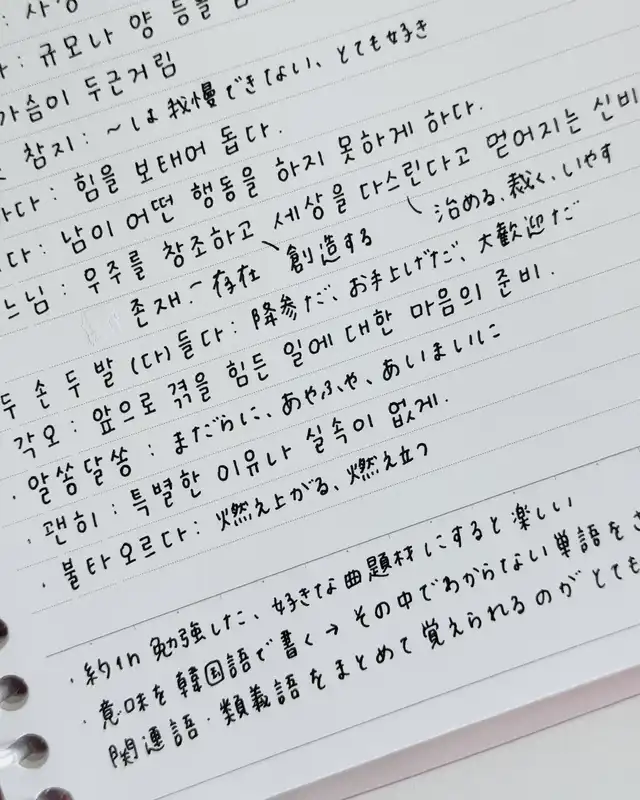 : 사랑
: 규모나 양 등을
가슴이 두근거림
참지 : ~しは我慢できない、とても好き
: 힘을 보태어 돕다.
다 : 남이 어떤 행동을 하지 못하게 하다.
느님 : 우주를 창조하고 세상을 다스린다고 믿어지는 신비
존재. 存在 創造する 治める、裁く、いやす
두 손 두 발 (다) 들다 : 降参だ、お手上げだ、大歓迎だ
각오 : 앞으로 겪을 힘든 일에 대한 마음의 준비.
· 알쏭달쏭 : まだらに、あやふや、あいまいに
· 괜히 : 특별한 이유나 실속이 없게.
· 불타오르다 : 燃え上がる、燃え立つ
· 約1h 勉強した、好きな曲題材にすると楽しい
· 意味を韓国語で書く → その中でわからない単語をさ
関連語・類義語をまとめて覚えられるのがとても